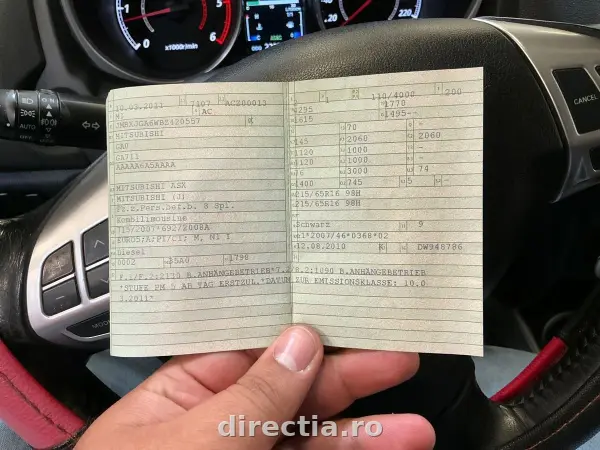 6
5
0
x1000r/min
160
180
200
220
CANCEL
AUTO
OFF
10.03.2011 7107 ACZ00013
M1 AC
JMBXJGA6WBZ420557
MITSUBISHI
GA0
GA711
AAAAA6A5AAAA
MITSUBISHI ASX
MITSUBISHI (J)
Fz.z.Pers.bef.b. 8 Spl.
Kombilimousine
715/2007*692/2008A
EURO5/A;PI/CI; M, N1 I
Diesel
0002 35A0 1798
1 110/4000 200
4295 1770
1615 1495--
- 70 -
145 2060 2060
1120 1000 -
1120 1090 -
76 3000 74
1400 745 5 -
215/65R16 98H
215/65R16 98H
Schwarz 9
e1*2007/46*0368*02
12.08.2010 K DW948786
F.1/F.2:2170 B.ANHÄNGEBETRIEB*7.2/8.2:1090 B.ANHÄNGEBETRIEB
*STUFE PM 5 AB TAG ERSTZUL.*DATUM ZUR EMISSIONSKLASSE: 10.0
3.2011*
directia.ro